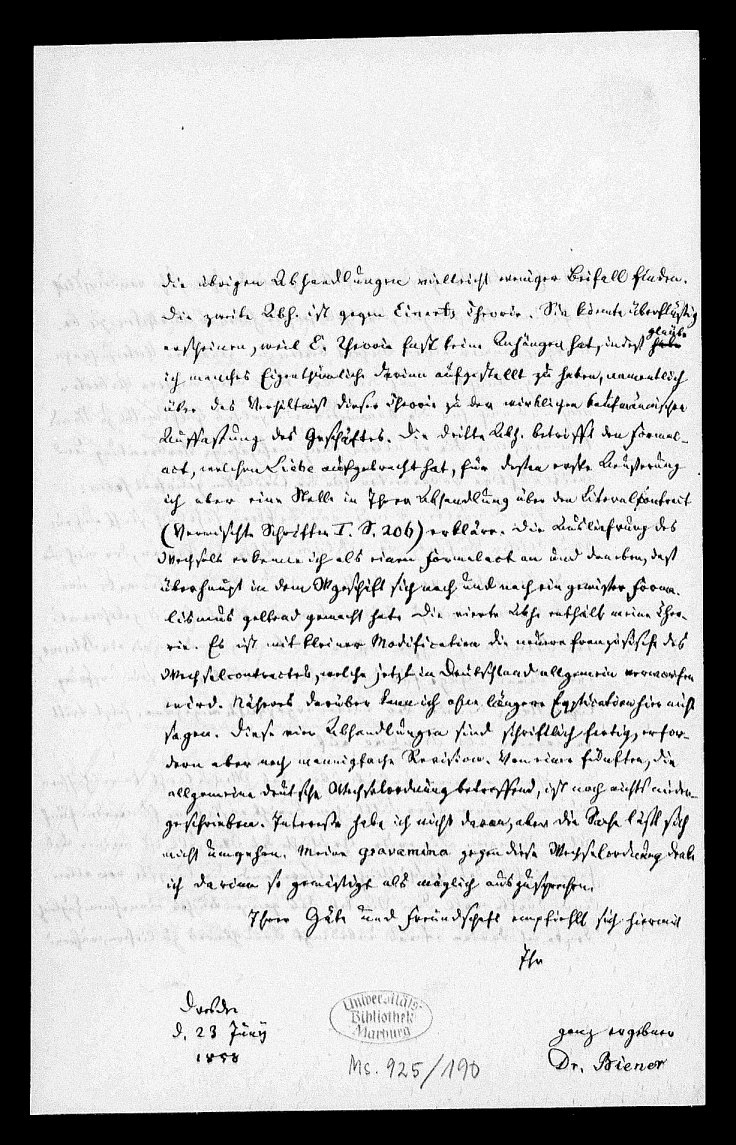 die übrigen Abhandlungen vielleicht weniger Beifall finden.
Die zweite Abh. ist gegen Einerts Theorie. Sie könnte überflüssig
erscheinen, weil E. Theorie fast keine Anhänger hat, indeß glaube
ich manches Eigenthümliche darinn aufgestellt zu haben, namentlich
über das Verhältniß dieser Theorie zu der wirklichen kaufmännischen
Auffassung des Geschäftes. Die dritte Abh. betrifft den Formal-
act, welchen Liebe aufgebracht hat, für dessen erste Äußerung
ich aber eine Stelle in Ihrer Abhandlung über den Literalcontract
(Vermischte Schriften I. S. 206) erkläre. Die Auslieferung des
Wechsels erkenne ich als einen Formalact an und daneben, daß
überhaupt in dem Wgeschäft sich nach und nach ein gewisser Forma-
lismus geltend gemacht hat. Die vierte Abh. enthält meine Theo-
rie. Es ist mit kleiner Modification die neuere französische des
Wechselcontractes, welche jetzt in Deutschland allgemein verworfen
wird. Näheres darüber kann ich ohne längere Explication hier nicht
sagen. Diese vier Abhandlungen sind schriftlich fertig, erfor-
dern aber noch mannigfache Revision. Von einer fünften, die
allgemeine deutsche Wechselordnung betreffend, ist noch nichts nieder-
geschrieben. Interesse habe ich nicht daran, aber die Sache läßt sich
nicht umgehen. Meine gravamina gegen diese Wechselordnung denke
ich darinn so gemäßigt als möglich auszusprechen.
Ihrer Güte und Freundschaft empfiehlt sich hiermit
Ihr
Dresden
d. 23 Juny
1858
ganz ergebner
Dr. Biener
Universitäts-
Bibliothek
Marburg
Ms. 925/190